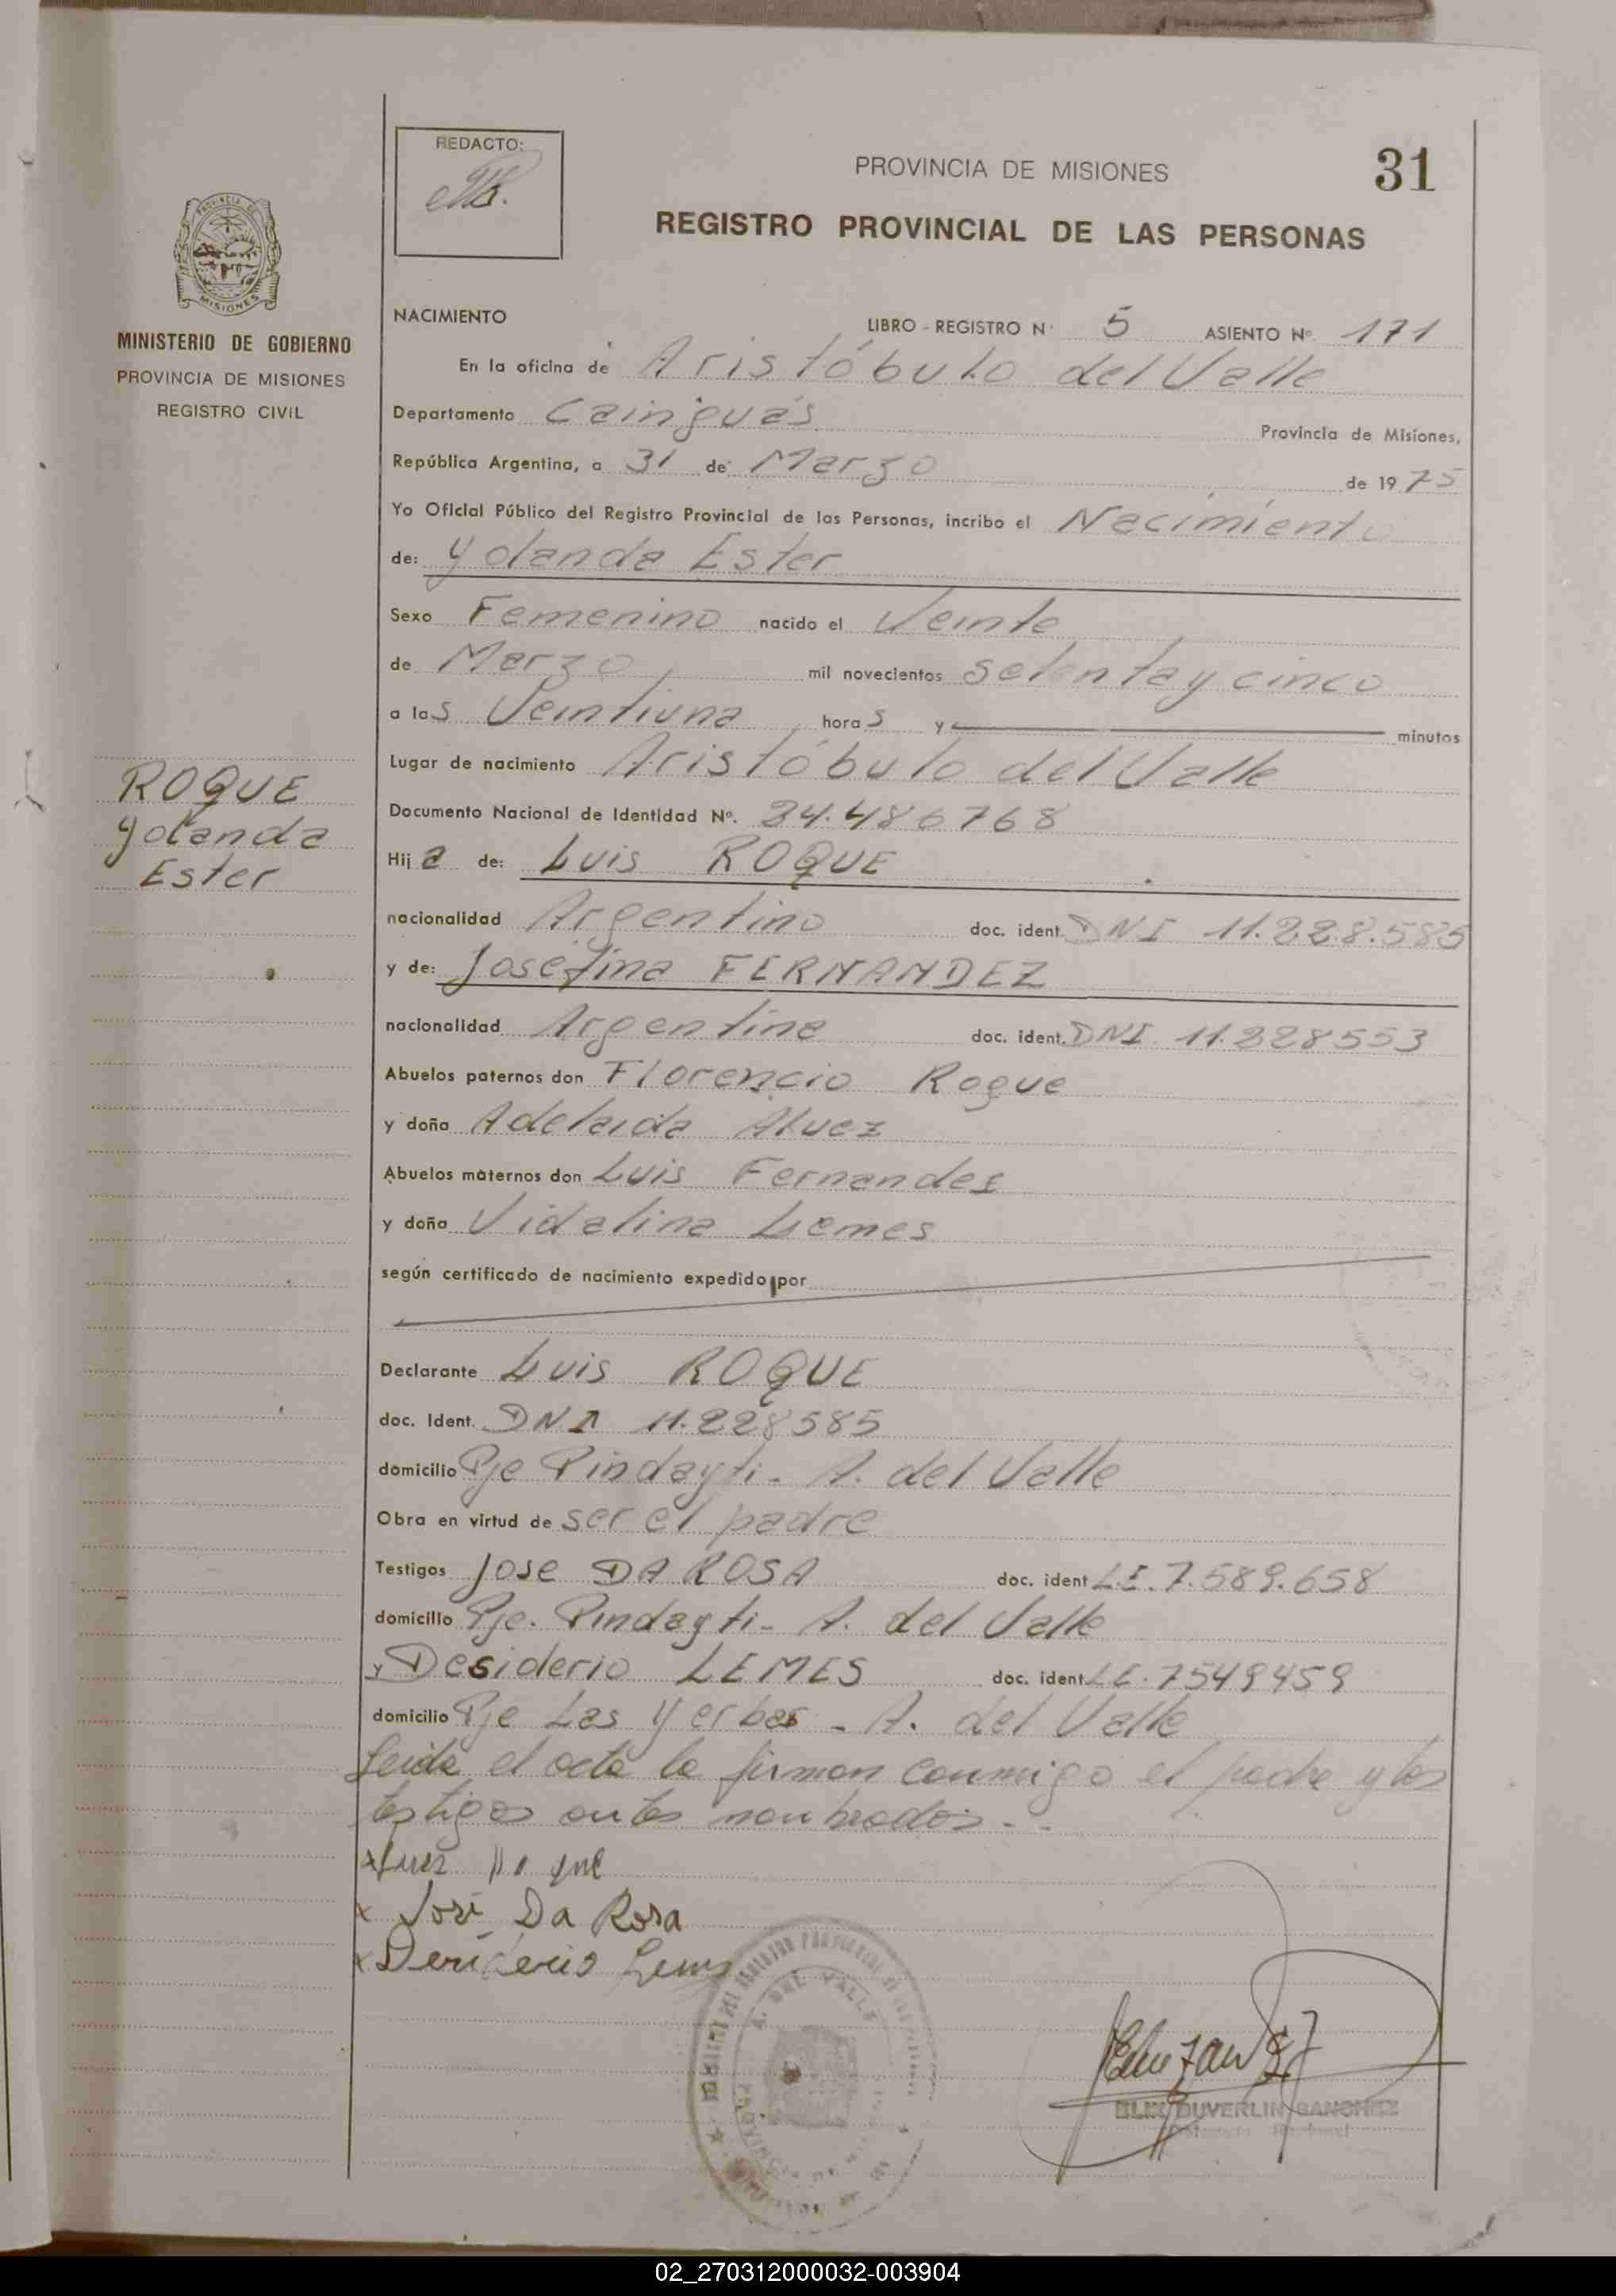 REDACTO:
PROVINCIA DE MISIONES
31
REGISTRO PROVINCIAL DE LAS PERSONAS
MINISTERIO DE GOBIERNO
PROVINCIA DE MISIONES
REGISTRO CIVIL
NACIMIENTO
LIBRO - REGISTRO Nº 5 ASIENTO Nº 171
En la oficina de Aristóbulo del Valle
Departamento Cainguás Provincia de Misiones,
República Argentina, a 31 de Marzo de 1975
Yo Oficial Público del Registro Provincial de las Personas, incribo el Nacimiento
de: Yolanda Ester
Sexo Femenino nacido el Veinte
de Marzo mil novecientos setenta y cinco
a las Veintiuna horas y minutos
Lugar de nacimiento Aristóbulo del Valle
ROQUE
Yolanda
Ester
Documento Nacional de Identidad Nº. 24.486768
Hija de: Luis ROQUE
nacionalidad Argentino doc. ident. DNI 11.228.585
y de: Josefina FERNANDEZ
nacionalidad Argentina doc. ident. DNI. 11.228553
Abuelos paternos don Florencio Roque
y doña Adelaida Alvez
Abuelos maternos don Luis Fernandes
y doña Vidalina Lemes
según certificado de nacimiento expedido por
Declarante Luis ROQUE
doc. Ident. DNI 11.228585
domicilio Pje Pindayti - A. del Valle
Obra en virtud de ser el padre
Testigos Jose DA ROSA doc. ident L.E. 7.589.658
domicilio Pje. Pindayti - A. del Valle
y Desiderio LEMES doc. ident L.E. 7549459
domicilio Pje Las Yerbas - A. del Valle
Leida el acta la firman conmigo el padre y los
testigos antes nombrados. -
x Luis Roque
x José Da Rosa
x Desiderio Lemes
A. DEL VALLE
DUVERLIN SANCHEZ
02_270312000032-003904